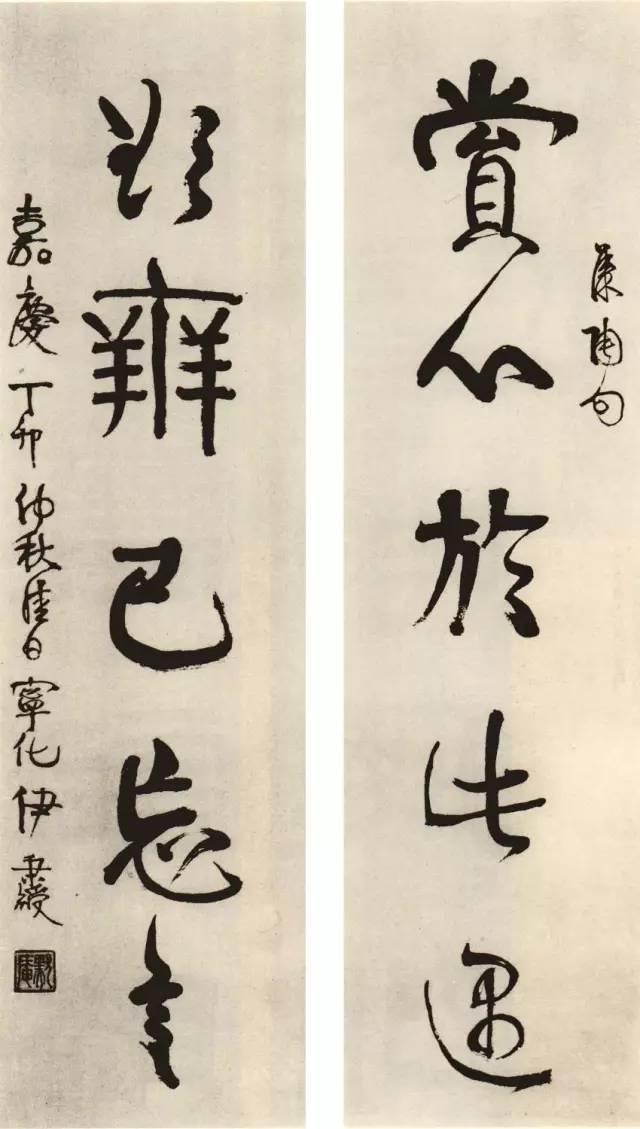 賞心於此遇
陶句
欲辨已忘言
嘉慶丁卯仲秋佳日寧化伊秉綬